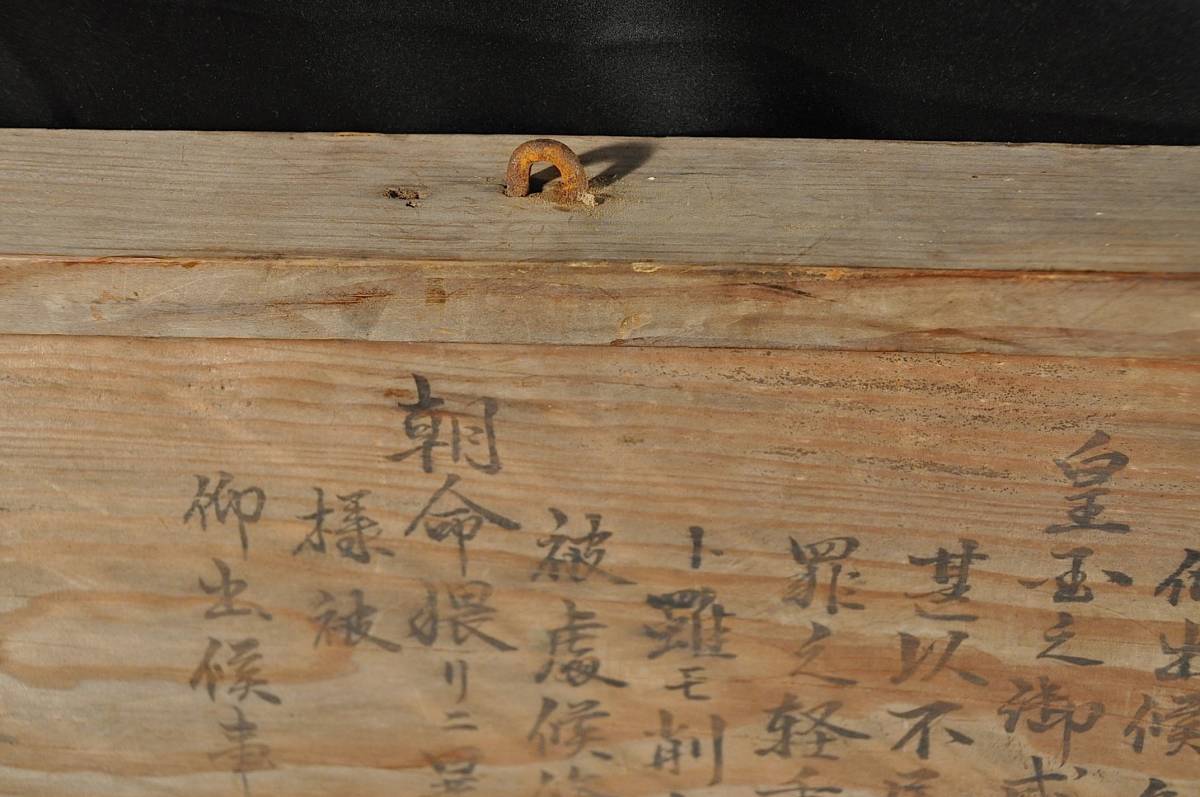 仰出候
皇国之御威
甚以不
罪之軽重
ト雖モ削
被處候
朝命猥リニ暴
様被
仰出候事